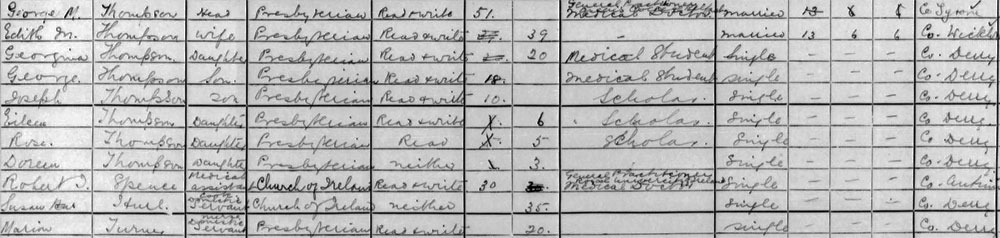 George M. Thompson Head Presbyterian Read & write 51. General Practitioner Medical Doctor married 13 6 5 Co Tyrone
Edith M. Thompson Wife Presbyterian Read & write 39 - married 13 6 6 Co. Wicklow
Georgina Thompson Daughter Presbyterian Read & write 20 Medical Student Single - - - Co. Derry
George Thompson Son. Presbyterian Read & write 18. Medical Student Single - - - Co. Derry
Joseph Thompson Son Presbyterian Read & write 10. Scholar. Single - - - Co. Derry
Eileen Thompson Daughter Presbyterian Read & write 6 Scholar. Single - - - Co. Derry
Rose. Thompson Daughter Presbyterian Read 5 Scholar. Single - - - Co. Derry
Doreen Thompson Daughter Presbyterian neither 3. Single - - - Co. Derry
Robert J. Spence Medical assistant Church of Ireland Read & write 30 General Practitioner Medical Doctor Single - - - Co. Antrim
Susan Hull Servant Church of Ireland neither 35. Single - - - Co. Derry
Marion Turner nurse domestic Servant Presbyterian Read & write 20. Single - - - Co. Derry